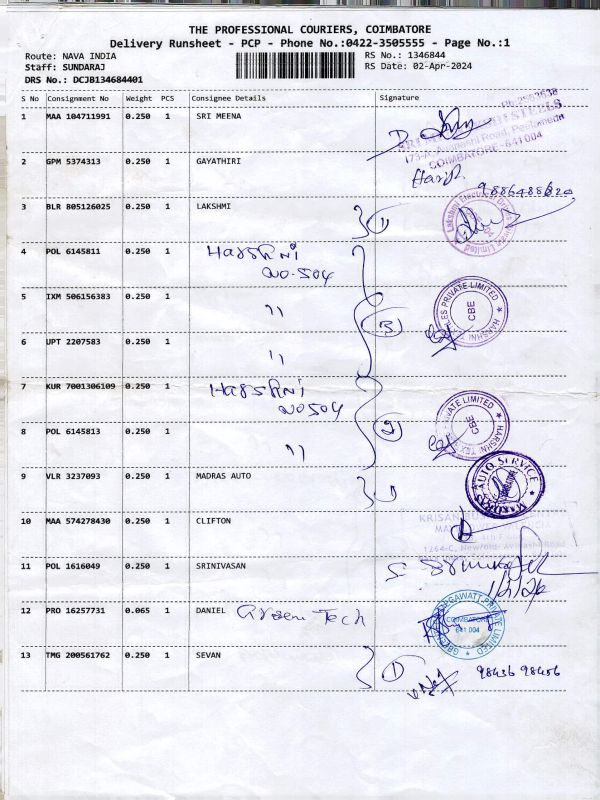 THE PROFESSIONAL COURIERS, COIMBATORE
Delivery Runsheet - PCP - Phone No.:0422-3505555 - Page No.:1
Route: NAVA INDIA
RS No.: 1346844
Staff: SUNDARAJ
RS Date: 02-Apr-2024
DRS No.: DCJB134684401
S No Consignment No Weight PCS Consignee Details Signature
1 MAA 104711991 0.250 1 SRI MEENA
173-A, Avinashi Road, Peelamedu
COIMBATORE - 641 004
2 GPM 5374313 0.250 1 GAYATHIRI
3 BLR 805126025 0.250 1 LAKSHMI 1
4 POL 6145811 0.250 1 HARSHNI
NO-504
5 IXM 506156383 0.250 1 " 3
HARSHNI TEXTILES PRIVATE LIMITED
CBE
6 UPT 2207583 0.250 1 "
7 KUR 7001306109 0.250 1 HARSHNI
NO504
8 POL 6145813 0.250 1 " 2
HARSHNI TEXTILES PRIVATE LIMITED
CBE
9 VLR 3237093 0.250 1 MADRAS AUTO 1
MADRAS AUTO SERVICE
10 MAA 574278430 0.250 1 CLIFTON
11 POL 1616049 0.250 1 SRINIVASAN
12 PRO 16257731 0.065 1 DANIEL Green Tech
COIMBATORE
641 004
13 TMG 200561762 0.250 1 SEVAN 1 98436 98456